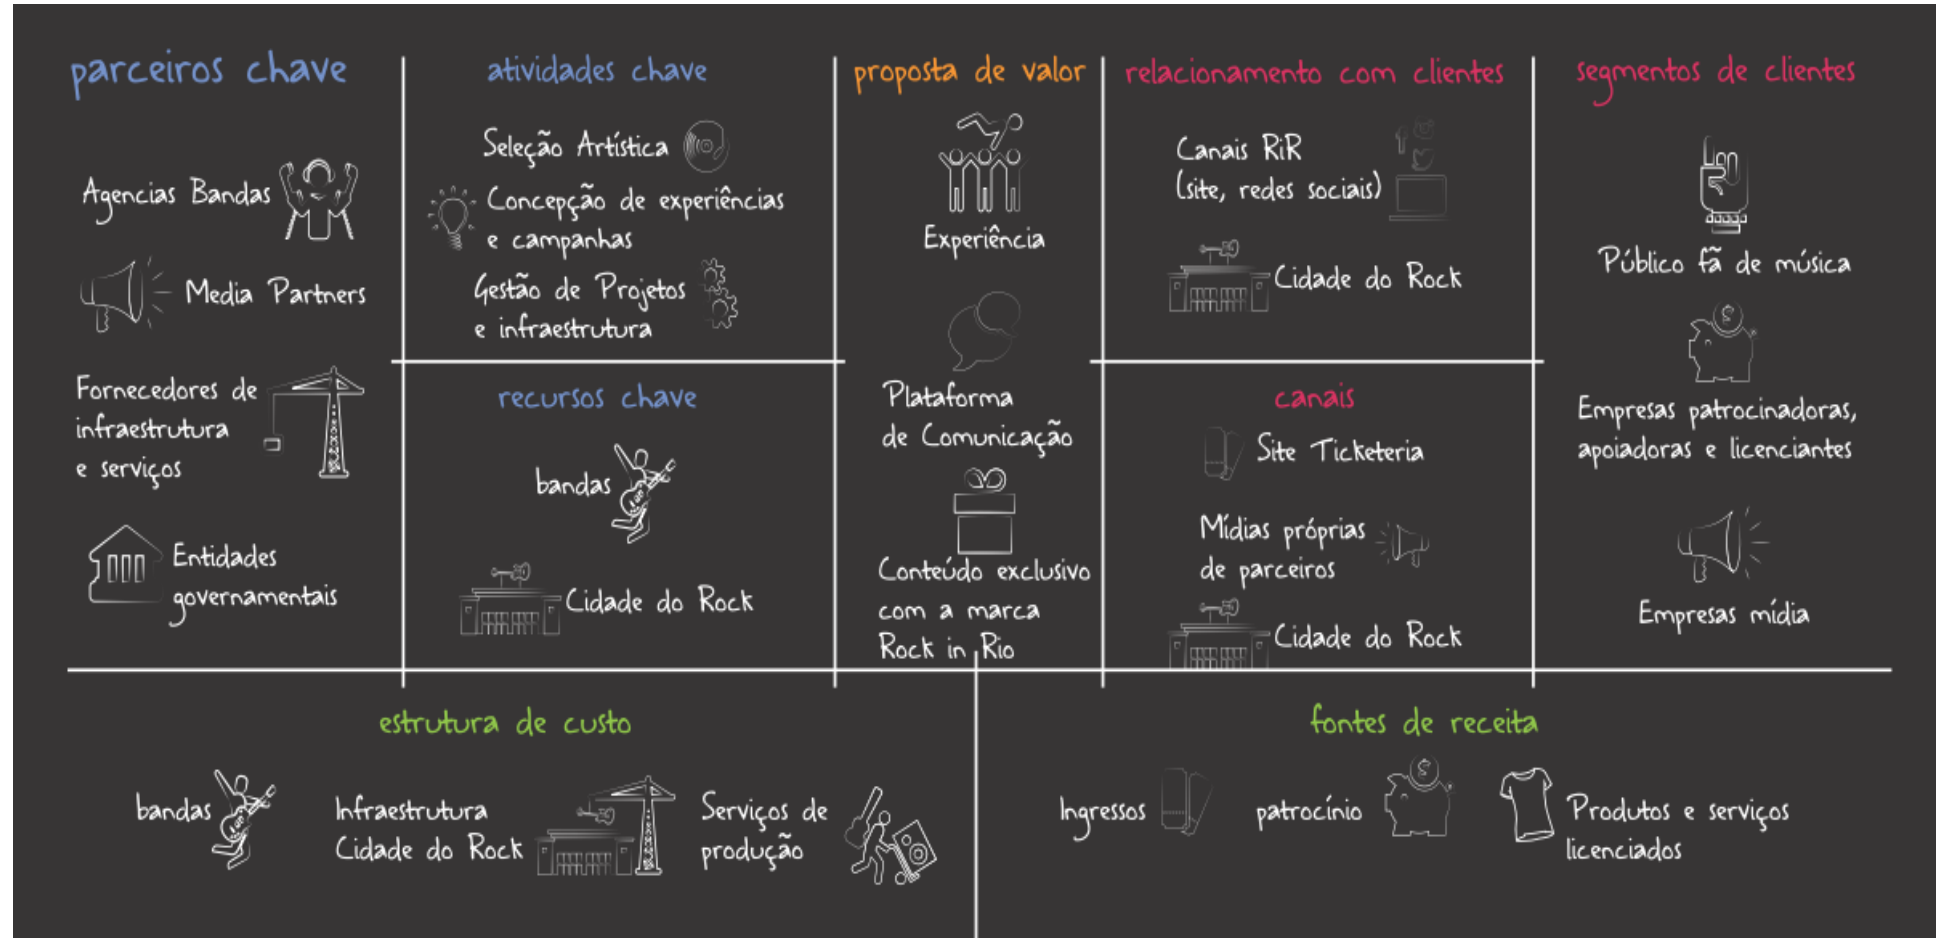 parceiros chave
Agencias Bandas
Media Partners
Fornecedores de
infraestrutura
e serviços
Entidades
governamentais
atividades chave
Seleção Artística
Concepção de experiências
e campanhas
Gestão de Projetos
e infraestrutura
recursos chave
bandas
Cidade do Rock
proposta de valor
Experiência
Plataforma
de Comunicação
Conteúdo exclusivo
com a marca
Rock in Rio
relacionamento com clientes
Canais RiR
(site, redes sociais)
Cidade do Rock
canais
Site Ticketeria
Mídias próprias
de parceiros
Cidade do Rock
segmentos de clientes
Público fã de música
Empresas patrocinadoras,
apoiadoras e licenciantes
Empresas mídia
estrutura de custo
bandas
Infraestrutura
Cidade do Rock
Serviços de
produção
fontes de receita
Ingressos
patrocínio
Produtos e serviços
licenciados